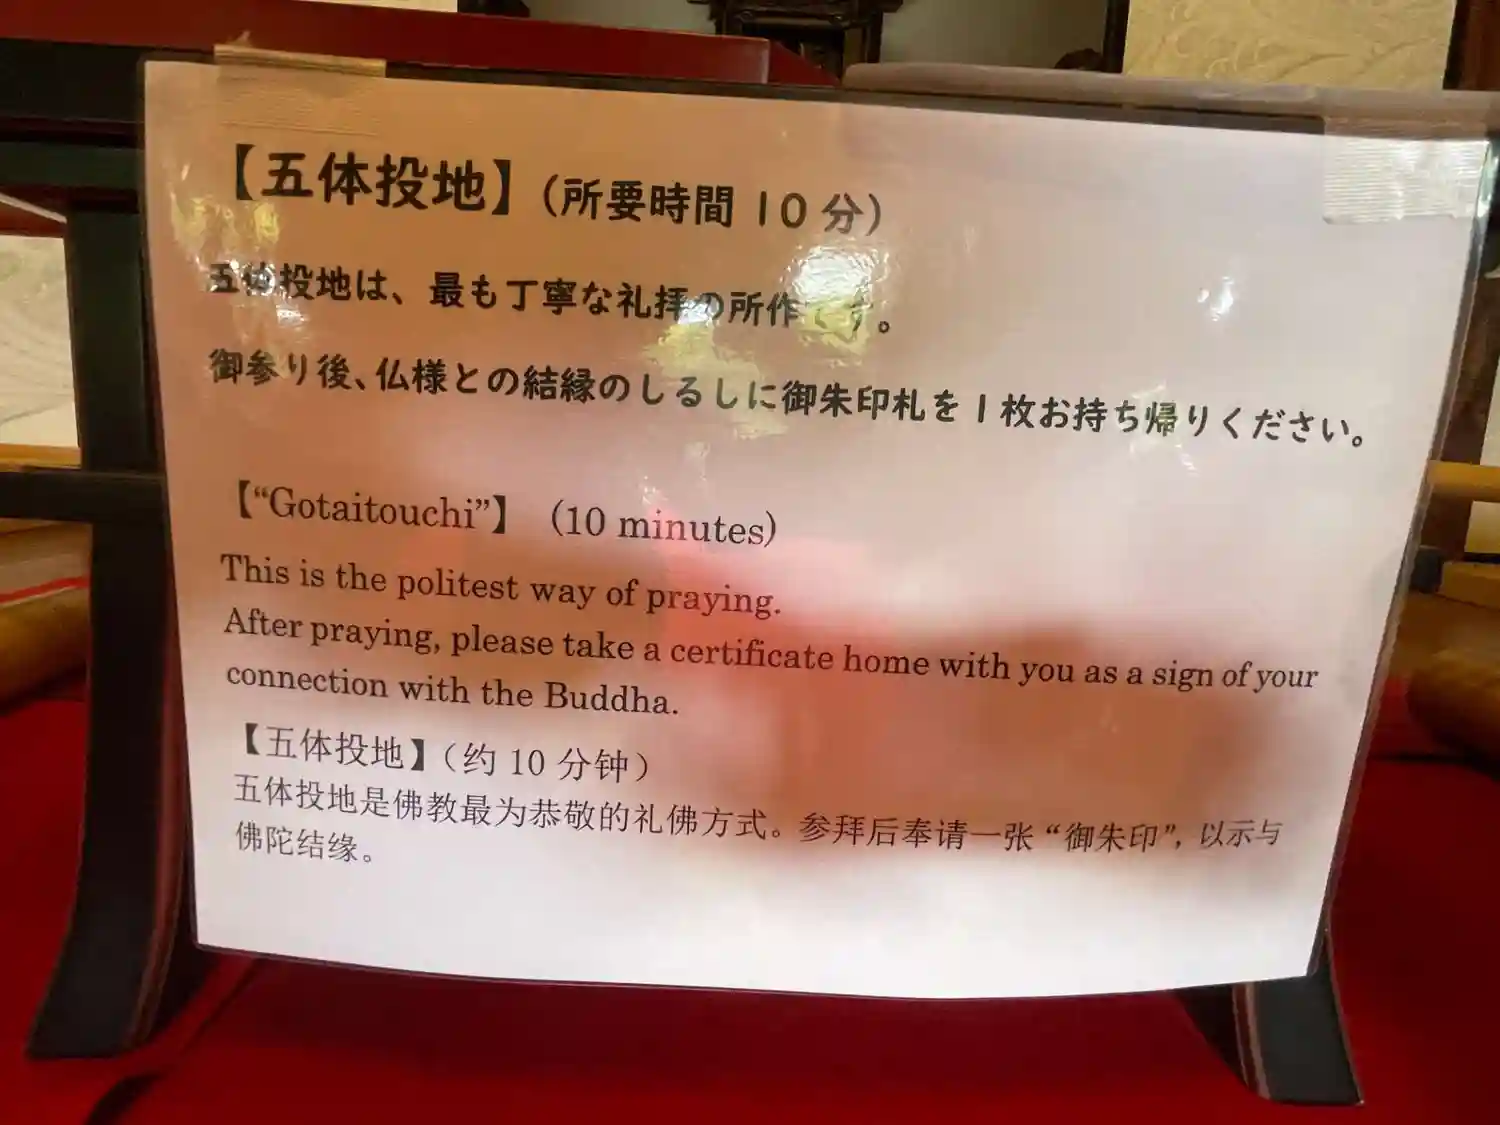 【五体投地】（所要時間 10 分）
五体投地は、最も丁寧な礼拝の所作です。
御参り後、仏様との結縁のしるしに御朱印札を1枚お持ち帰りください。
【“Gotaitouchi”】 (10 minutes)
This is the politest way of praying.
After praying, please take a certificate home with you as a sign of your
connection with the Buddha.
【五体投地】（约 10 分钟）
五体投地是佛教最为恭敬的礼佛方式。参拜后奉请一张 “御朱印”，以示与
佛陀结缘。